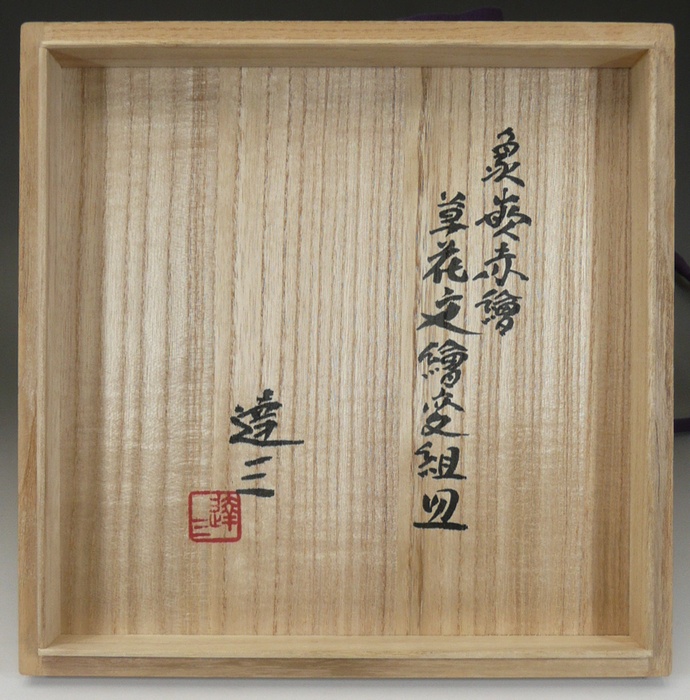 象嵌赤繪
草花文繪変組皿
達三
達三